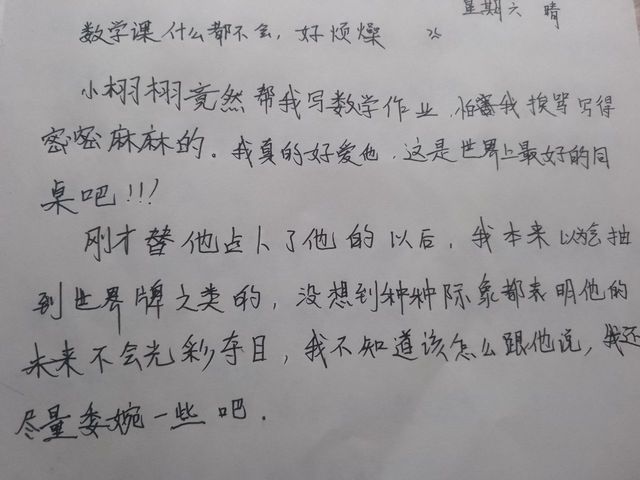 星期六 晴
数学课什么都不会，好烦燥
小栩栩竟然帮我写数学作业，怕害我挨骂写得
密密麻麻的。我真的好爱他，这是世界上最好的同
桌吧!!!
刚才替他占卜了他的以后，我本来以为会抽
到世界牌之类的，没想到种种际象都表明他的
未来不会光彩夺目，我不知道该怎么跟他说，我还
尽量委婉一些吧.